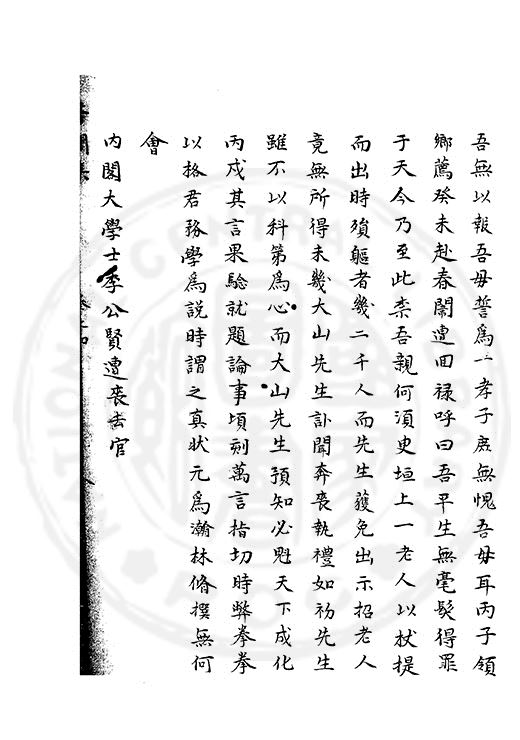 吾無以報吾毋誓爲一孝子庶無愧吾毋耳丙子領
鄉薦癸未赴春闈遭回禄呼曰吾平生無毫髮得罪
于天今乃至此柰吾親何須史垣上一老人以杖提
而出時殞軀者幾二千人而先生獲免出示招老人
竟無所得未幾大山先生訃聞奔喪執禮如初先生
雖不以科第爲心而大山先生預知必魁天下成化
丙戍其言果驗就題論事頃刻萬言指切時弊拳拳
以格君務學爲説時謂之真狀元爲瀚林脩撰無何
會
内閣大學士李公賢遭喪去官